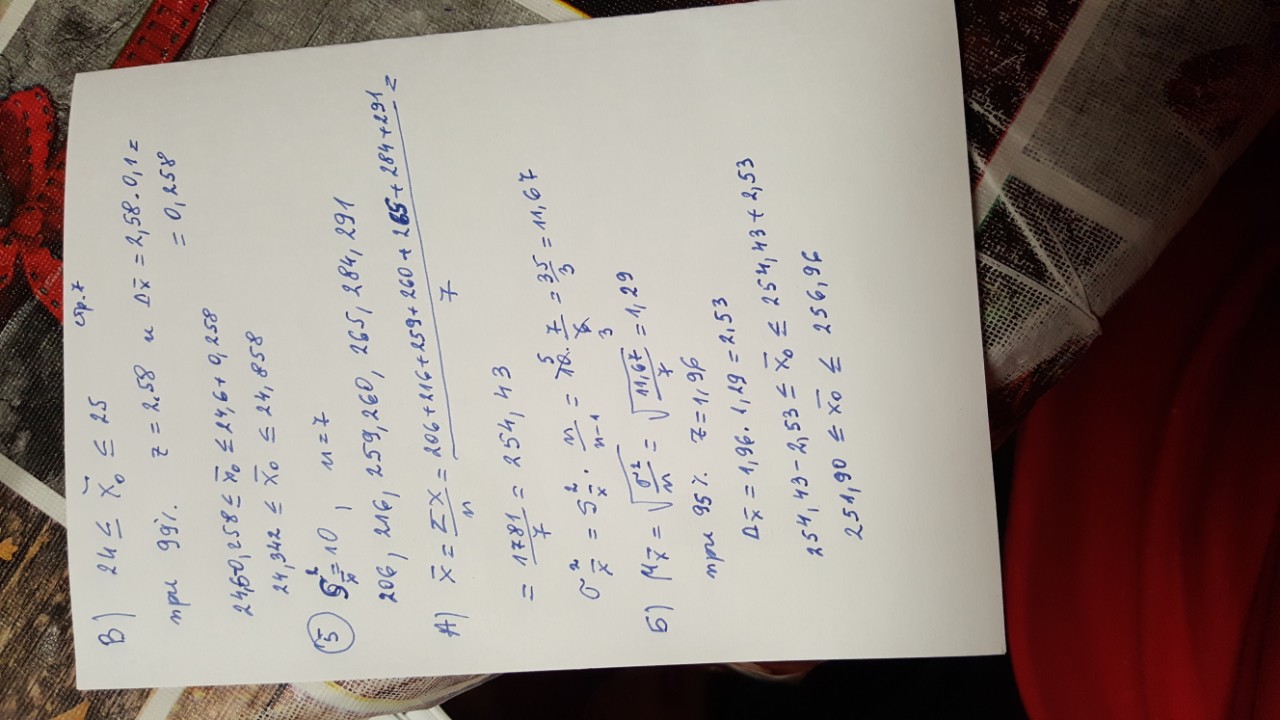 стр.7
В) 24 ≤ x̄₀ ≤ 25
при 99%. z = 2.58 и Δx̄ = 2,58 · 0,1 =
= 0,258
24,6-0,258 ≤ x̄₀ ≤ 24,6 + 0,258
24,342 ≤ x̄₀ ≤ 24,858
5 σ²x̄ = 10, n = 7
206, 216, 259, 260, 265, 284, 291
А) x̄ = Σx/n = (206+216+259+260+265+284+291)/7 =
= 1781/7 = 254,43
σ²x̄ = S²x̄ · n/(n-1) = 10 5 · 7/6 3 = 35/3 = 11,67
Б) μx̄ = √(σ²/n) = √(11,67/7) = 1,29
при 95%. z = 1,96
Δx̄ = 1,96 · 1,29 = 2,53
254,43 - 2,53 ≤ x̄₀ ≤ 254,43 + 2,53
251,90 ≤ x̄₀ ≤ 256,96